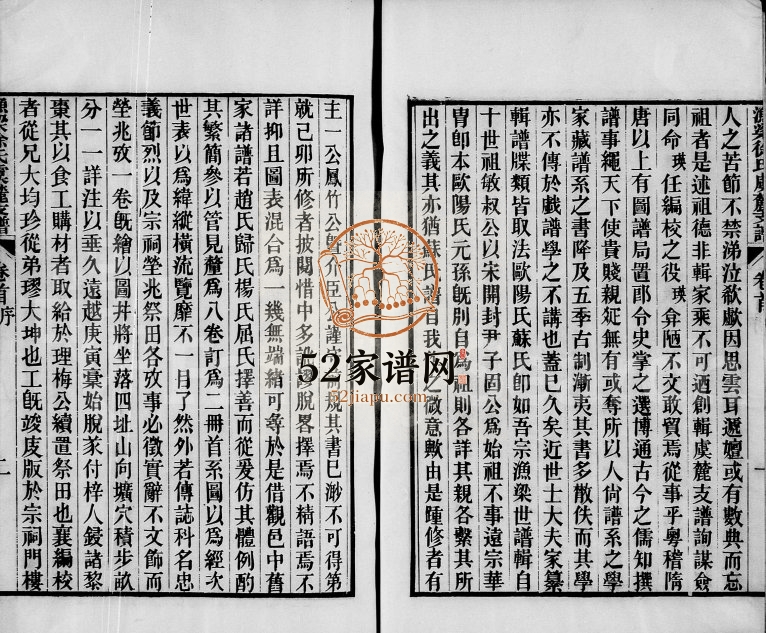 漁梁徐氏虞麓支譜 卷首 一
人之苦節不禁涕泣欷歔因思雲耳遞嬗或有數典而忘
祖者是述祖德非輯家乘不可迺創輯虞麓支譜詢謀僉
同命瑛任編校之役瑛弇陋不文敢貿焉從事乎粵稽隋
唐以上有圖譜局置郎令史掌之選博通古今之儒知撰
譜事繩天下使貴賤親疏無有或奪所以人尙譜系之學
家藏譜系之書降及五季古制漸夷其書多散佚而其學
亦不傳於戲譜學之不講也蓋已久矣近世士大夫家纂
輯譜牒類皆取法歐陽氏蘇氏卽如吾宗漁梁世譜輯自
十世祖敏叔公以宋開封尹子固公為始祖不事遠宗華
冑卽本歐陽氏元孫旣別自為祖則各詳其親各繫其所
出之義其亦猶蘇氏譜自我之微意歟由是踵修者有
主一公鳳竹公曁介臣公謹規其書已渺不可得第
就己卯所修者披閱惜中多脫畧擇焉不精語焉不
詳抑且圖表混合為一幾無端緒可尋於是借觀邑中舊
家諸譜若趙氏歸氏楊氏屈氏擇善而從爰仿其體例酌
其繁簡參以管見釐為八卷訂為二冊首系圖以為經次
世表以為緯縱橫流覽靡不一目了然外若傳誌科名忠
義節烈以及宗祠塋兆祭田各攷事必徵實辭不文飾而
塋兆攷一卷旣繪以圖幷將坐落四址山向壙穴積步畝
分一一詳注以垂久遠越庚寅稾始脫爰付梓人鋟諸黎
棗其以食工購材者取給於理梅公續置祭田也襄編校
者從兄大均珍從弟璆大坤也工旣竣庋版於宗祠門樓
漁梁徐氏虞麓支譜 卷首 序 二
52家谱网
52jiapu.com